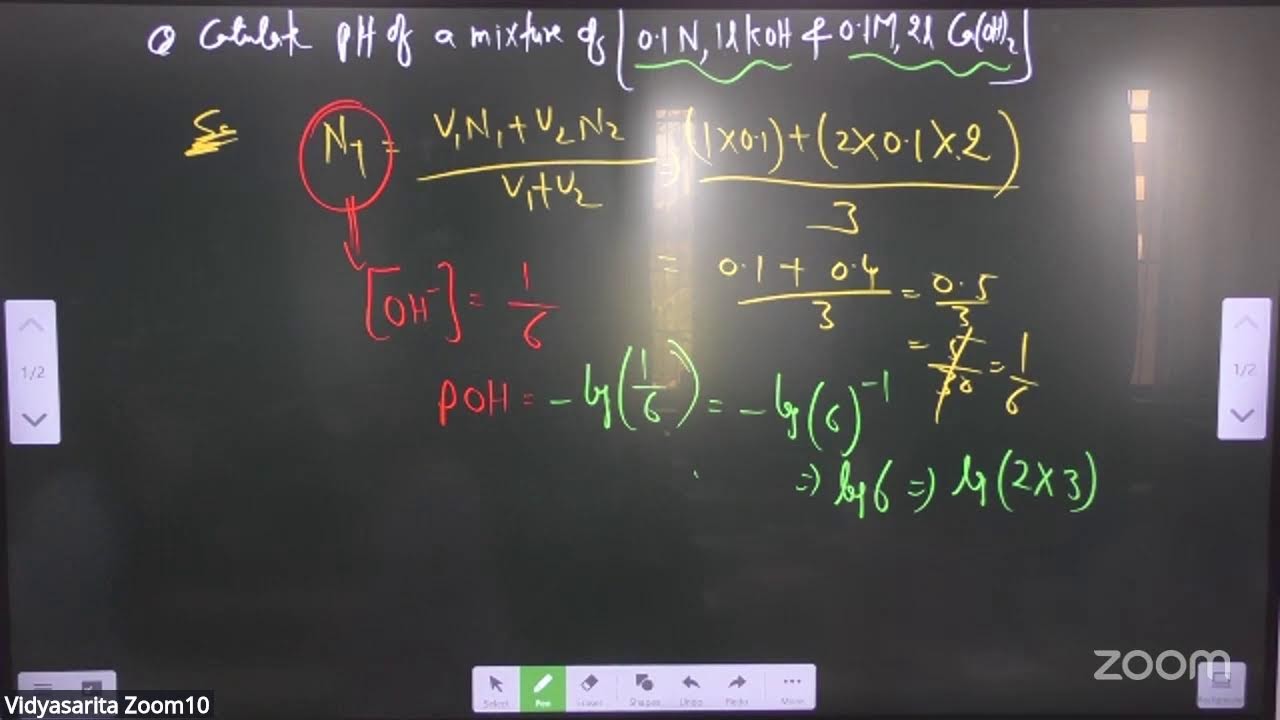 Q Calculate pH of a mixture of [0.1N, 1l KOH & 0.1M, 2l Ca(OH)2]
So
NT = V1N1 + V2N2 / V1+V2 => (1×0.1)+(2×0.1×2) / 3
= 0.1 + 0.4 / 3 = 0.5 / 3
[OH-] = 1/6
= 5/30 = 1/6
POH = -log(1/6) = -log(6)^-1
=> log6 => log(2×3)
1/2
1/2
zoom
Select
Pen
Eraser
Shapes
Undo
Redo
More
Vidyasarita Zoom10